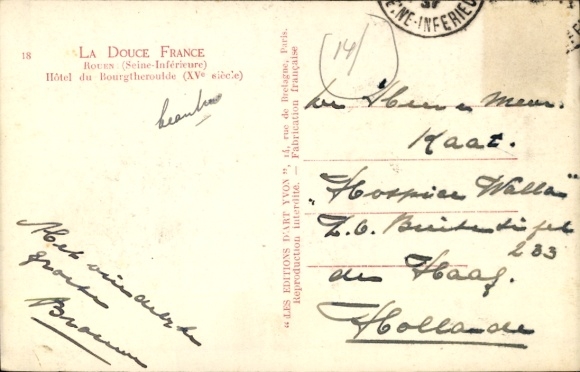 18
LA DOUCE FRANCE
ROUEN (Seine-Inférieure)
Hôtel du Bourgtheroulde (XVe siècle)
"LES EDITIONS D'ART YVON", 15, rue de Bretagne, Paris.
Reproduction interdite. — Fabrication française
NE-INFERIEU
(14)
Heer en Mevr.
Kaat.
"Hospice Walla"
Z.O. Buitensingel
233
den Haag.
Hollande
Met
groeten